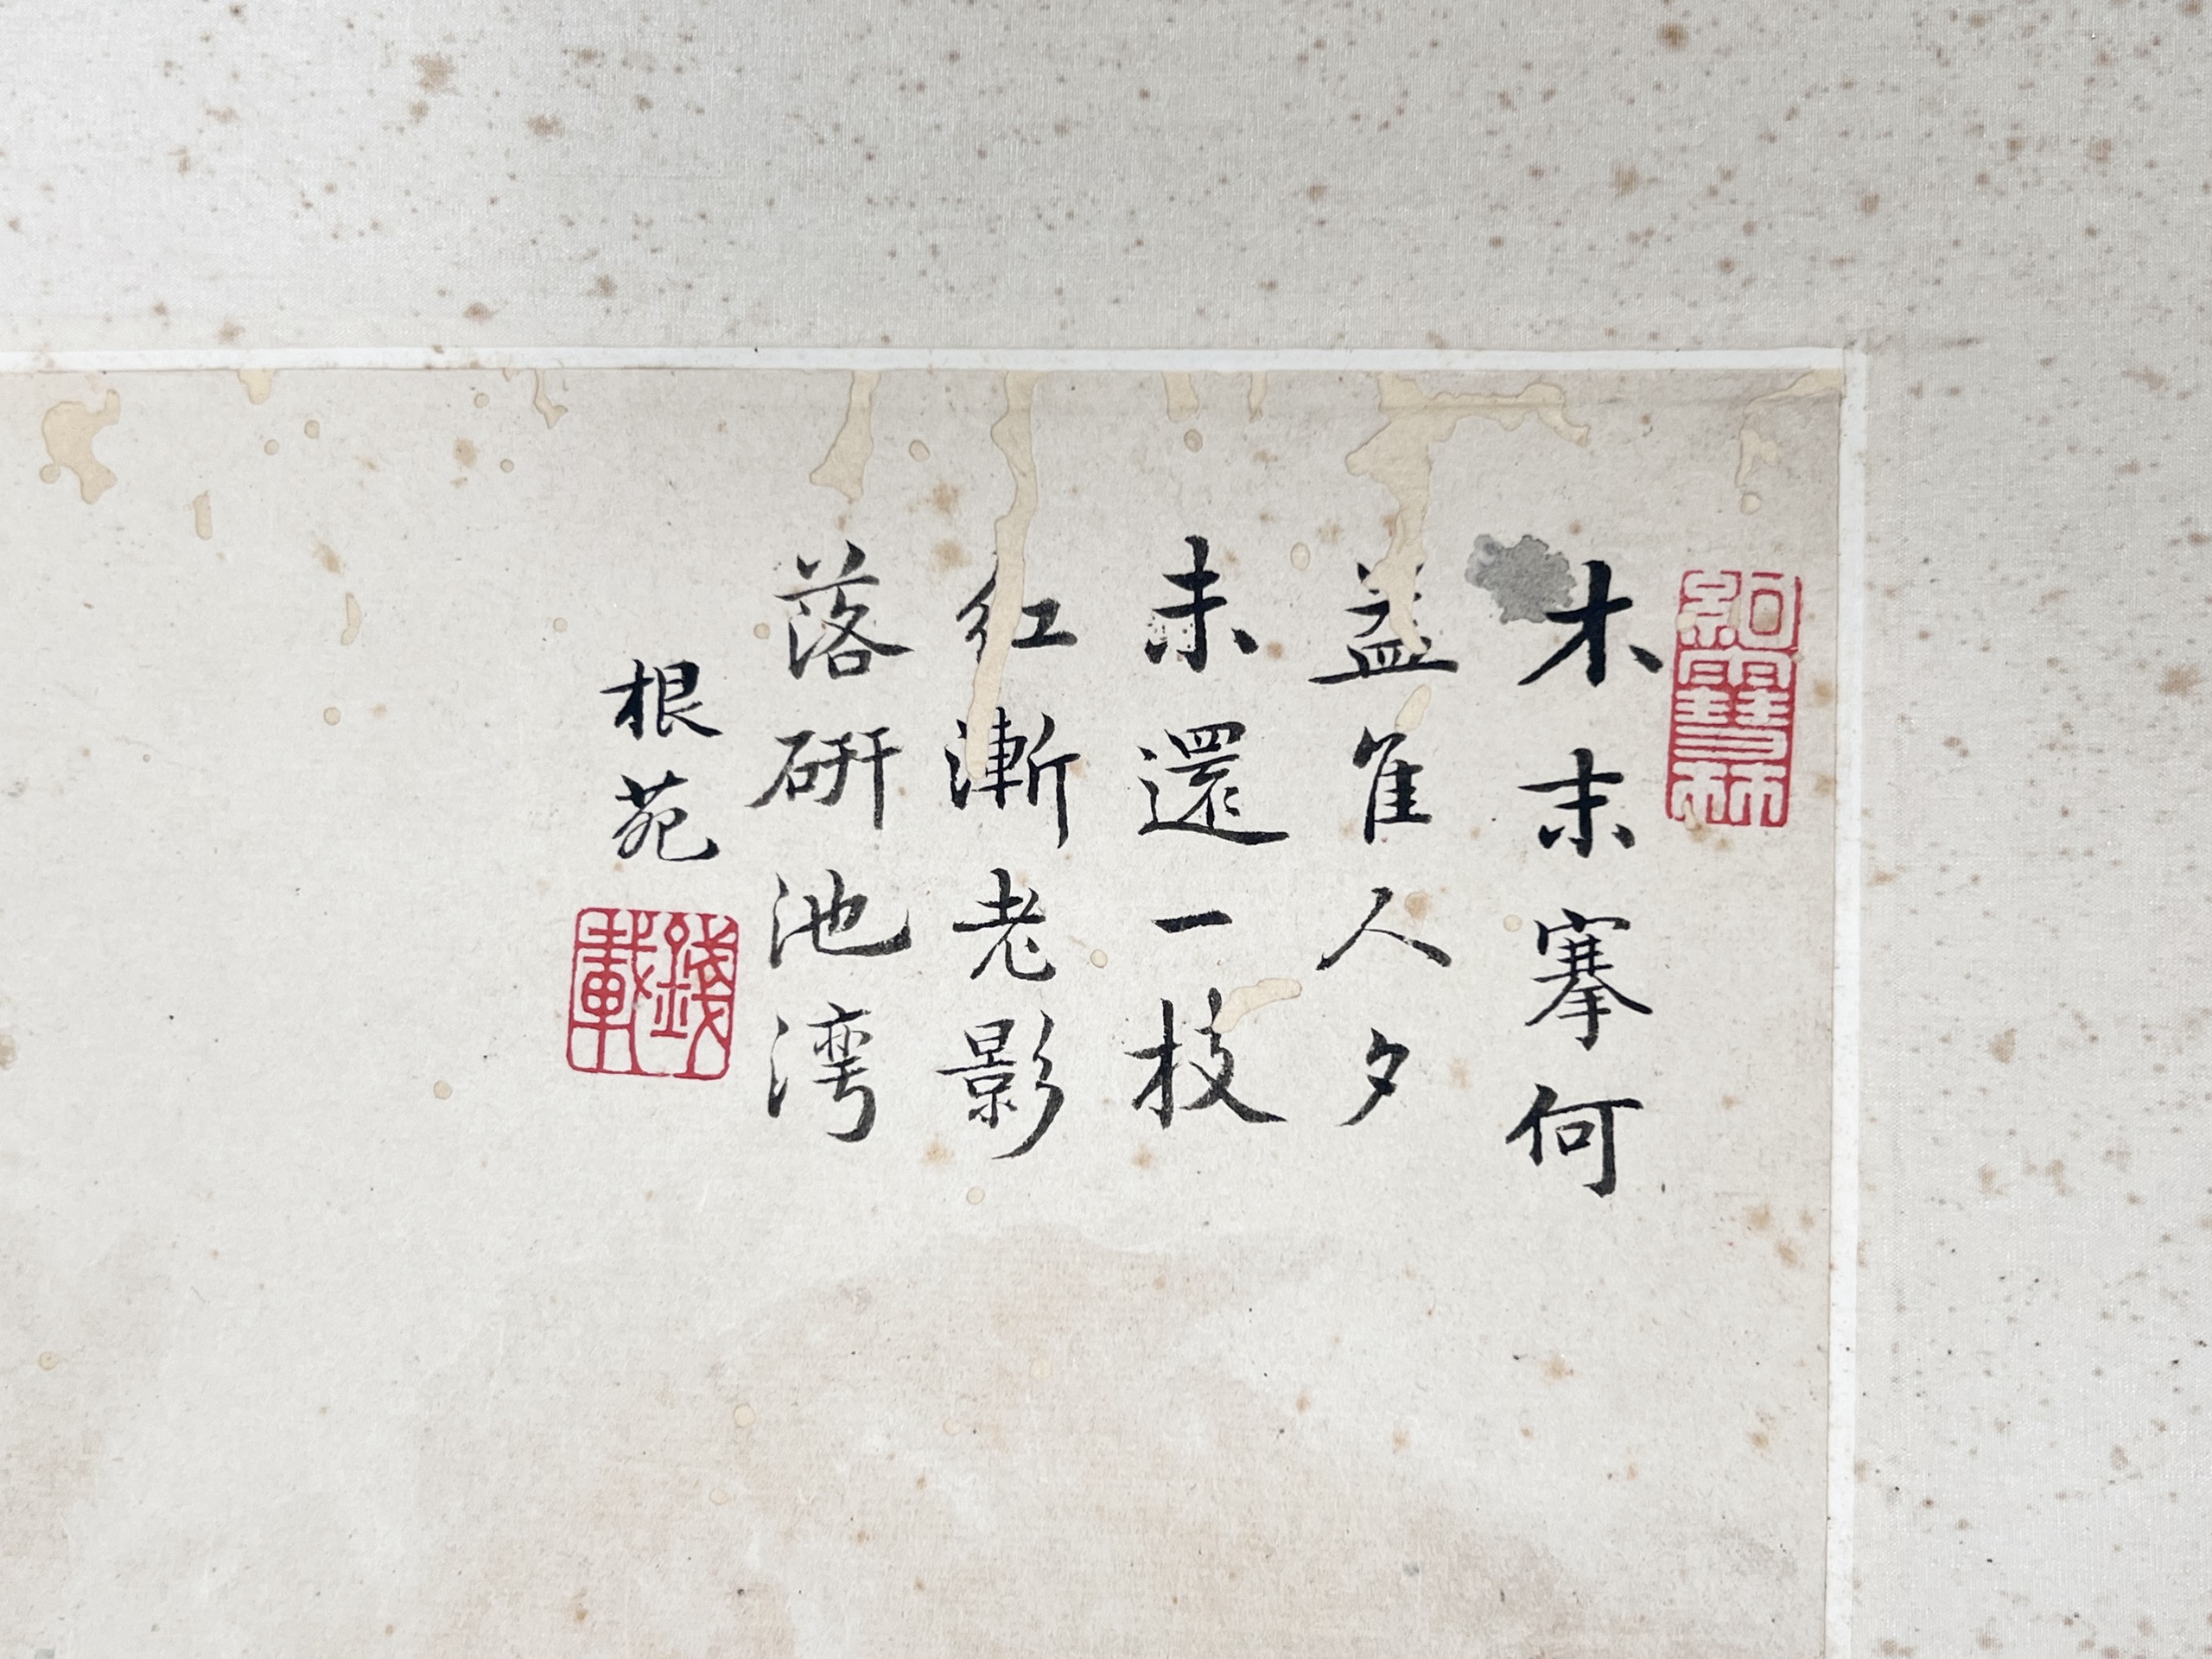 木末搴何
益隹人夕
未還一枝
紅漸老影
落硏池湾
根苑
錢載